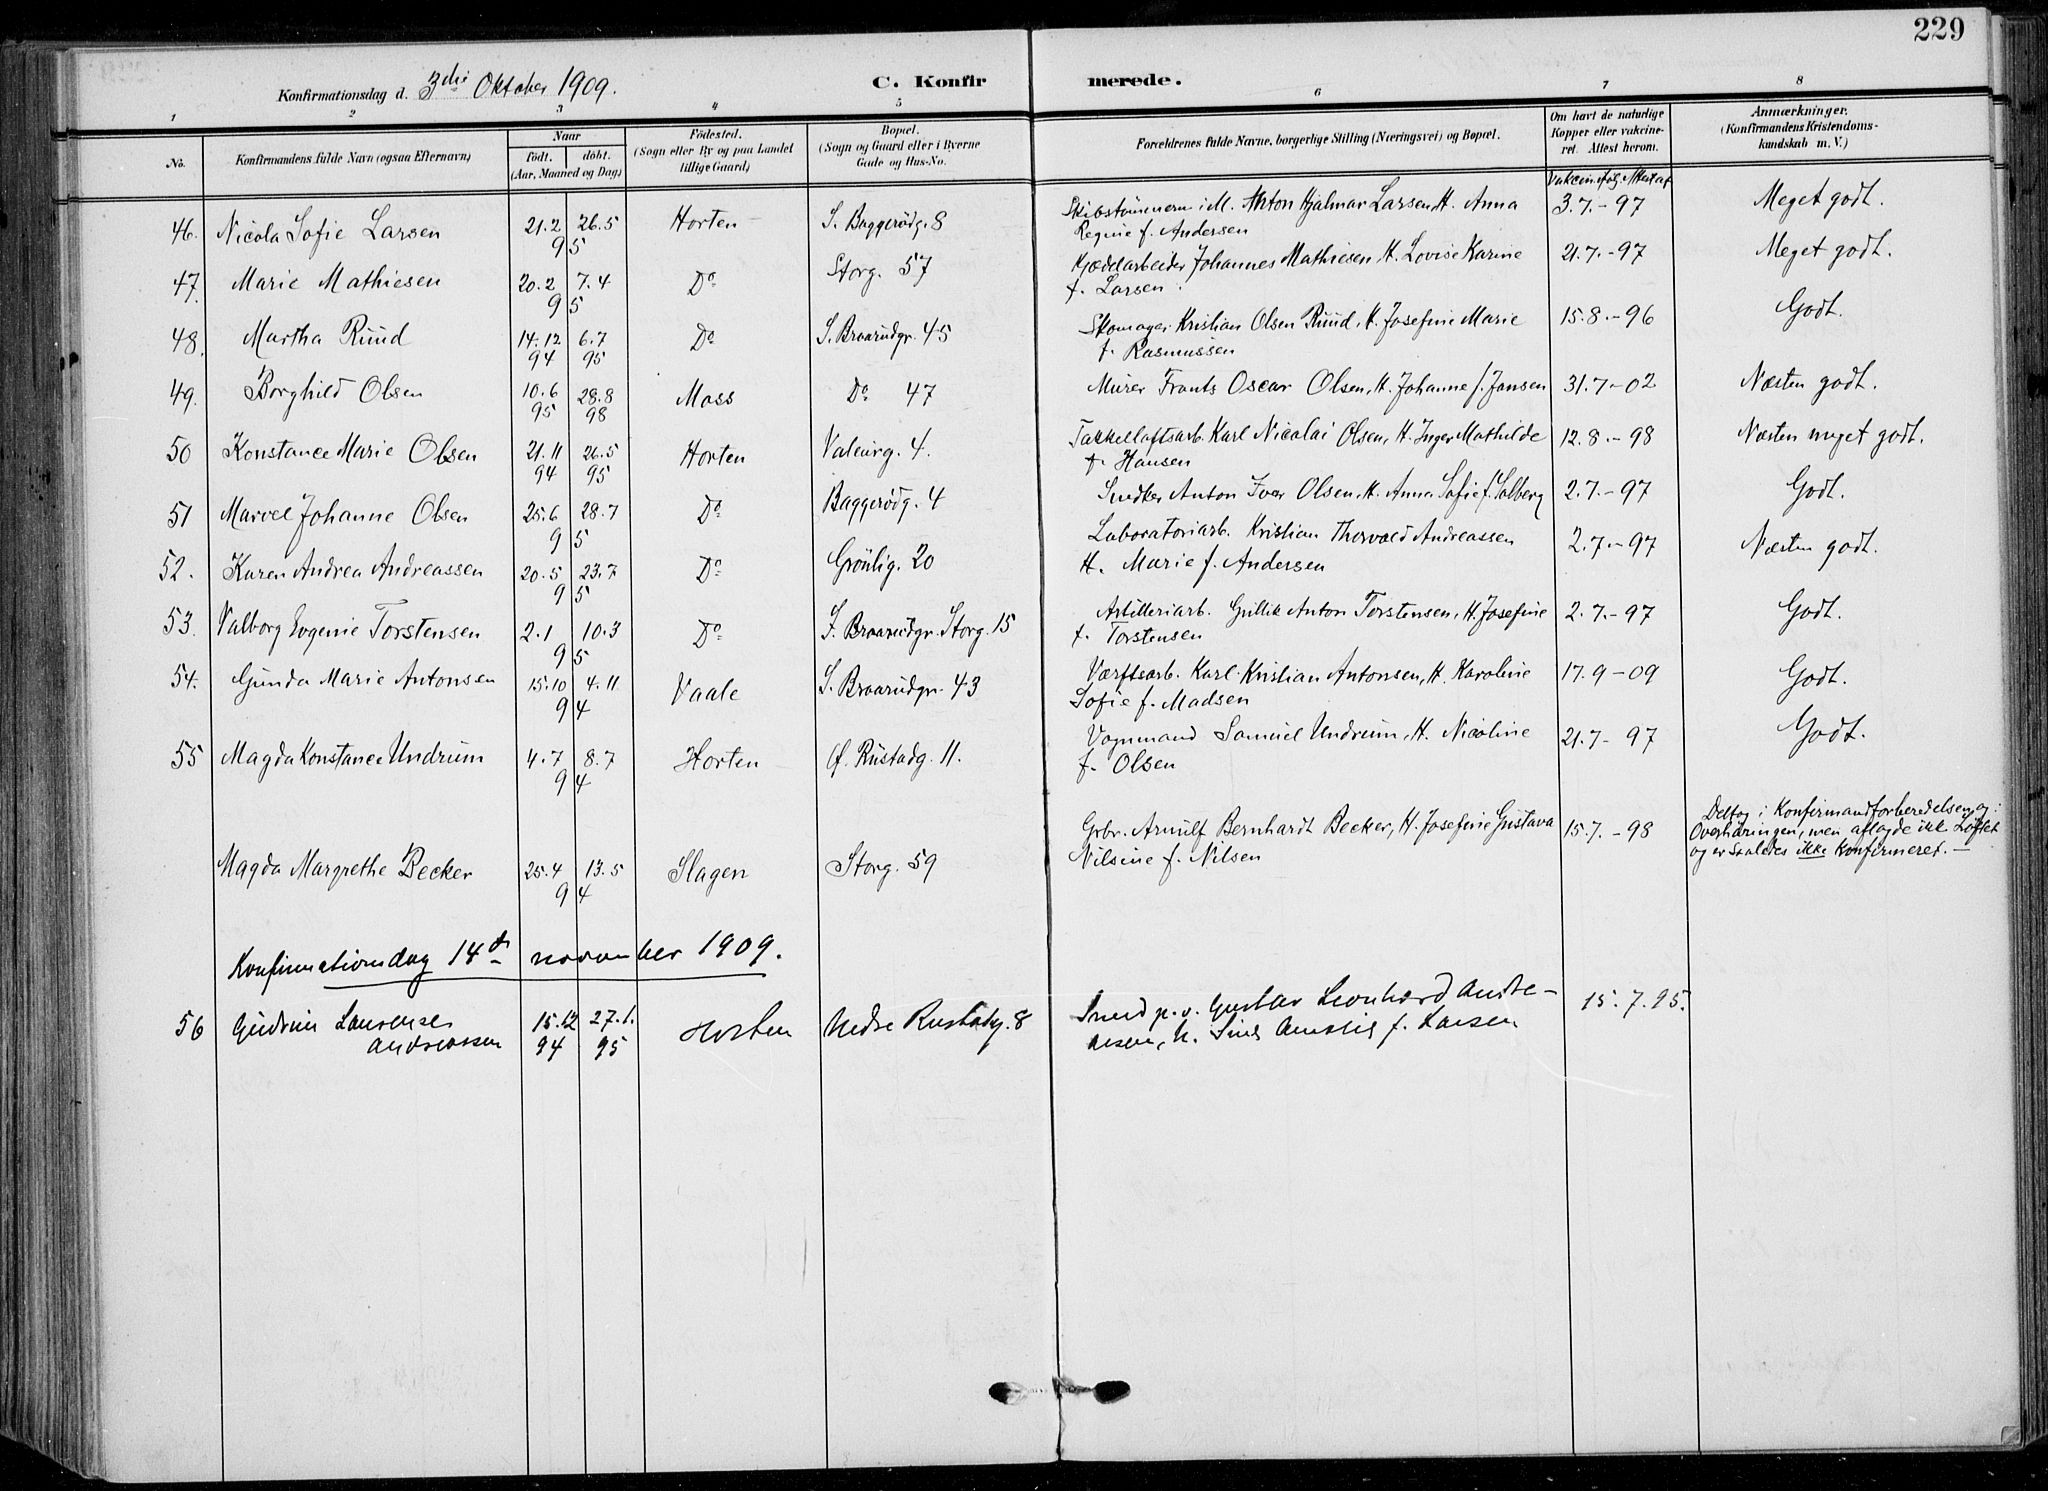 229
Konfirmationsdag d. 3die Oktober 1909.
C. Konfirmerede.
1 2 3 4 5 6 7 8
No.
Konfirmandens fulde Navn (ogsaa Efternavn)
Naar
født. døbt.
(Aar, Maaned og Dag)
Födested.
(Sogn eller By og paa Landet
tillige Gaard)
Bopæl.
(Sogn og Gaard eller i Byerne
Gade og Hus-No.
Forældrenes fulde Navne, borgerlige Stilling (Næringsvei) og Bopæl.
Om havt de naturlige
Kopper eller vakcine-
ret. Attest herom.
Anmærkninger.
(Konfirmandens Kristendoms-
kundskab m. V.)
Vakcin. følg. Attest af
46. Nicola Sofie Larsen 21.2 26.5 95 Horten S. Baggerødg. 8 Anton Hjalmar Larsen, H. Anna 3.7.-97 Meget godt.
Regine f. Andersen
47. Marie Mathiesen 20.2 7.4 95 Do Storg. 57 Kjedelarbeider Johannes Mathiesen, H. Lovise Karine 21.7.-97 Meget godt.
f. Larsen.
48. Martha Ruud 14.12 94 6.7 95 Do S. Braarudgr. 45 Skomager Kristian Olsen Ruud, H. Josefine Marie 15.8.-96 Godt.
f. Rasmussen
49. Borghild Olsen 10.6 95 28.8 98 Moss Do 47 Murer Frants Oscar Olsen, H. Johanne f. Jansen 31.7.-02 Næsten godt.
50 Konstance Marie Olsen 21.11 94 26.5 95 Horten Valeurg. 4. Takkelloftsarb. Karl Nicolai Olsen, H. Inger Mathilde 12.8.-98 Næsten meget godt.
f. Hansen
51 Marvel Johanne Olsen 25.6 28.7 95 Do Baggerødg. 4 Snedker Anton Iver Olsen, H. Anna Sofie f. Solberg 2.7.-97 Godt.
52. Karen Andrea Andreassen 20.5 23.7 95 Do Grönlig. 20 Laboratoriarb. Kristian Thorvald Andreassen 2.7.-97 Næsten godt.
H. Marie f. Andersen
53. Valborg Evgenie Torstensen 2.1 10.3 95 Do S. Braarudgr. Storg. 15 Artilleriarb. Gullik Anton Torstensen, H. Josefine 2.7.-97 Godt.
f. Torstensen
54. Gunda Marie Antonsen 15.10 4.11 94 Vaale S. Braarudgr. 43 Værftsarb. Karl Kristian Antonsen, H. Karoline 17.9-09 Godt.
Sofie f. Madsen
55 Magda Konstance Undrum 4.7 8.7 94 Horten Ø. Rustadg. 11. Vognmand Samuel Undrum, H. Nicoline 21.7-97 Godt.
f. Olsen
Magda Margrethe Becker 25.4 13.5 94 Slagen Storg. 59 Grbr. Arnulf Bernhardt Becker, H. Josefine Gustava 15.7.-98
Nilsine f. Nilsen
Deltog i Konfirmandforberedelsen og i
Overhøringen, men aflagde ikke Løftet
og er saaledes ikke Konfirmeret.—
Konfirmationsdag 14de november 1909.
56 Gudrun Laurense 15.12 27.1. Horten Nedre Rustadg. 8 Gustav Leonhard Andre- 15.7.95.
Andreassen 94 95 asen, h. f. Larsen